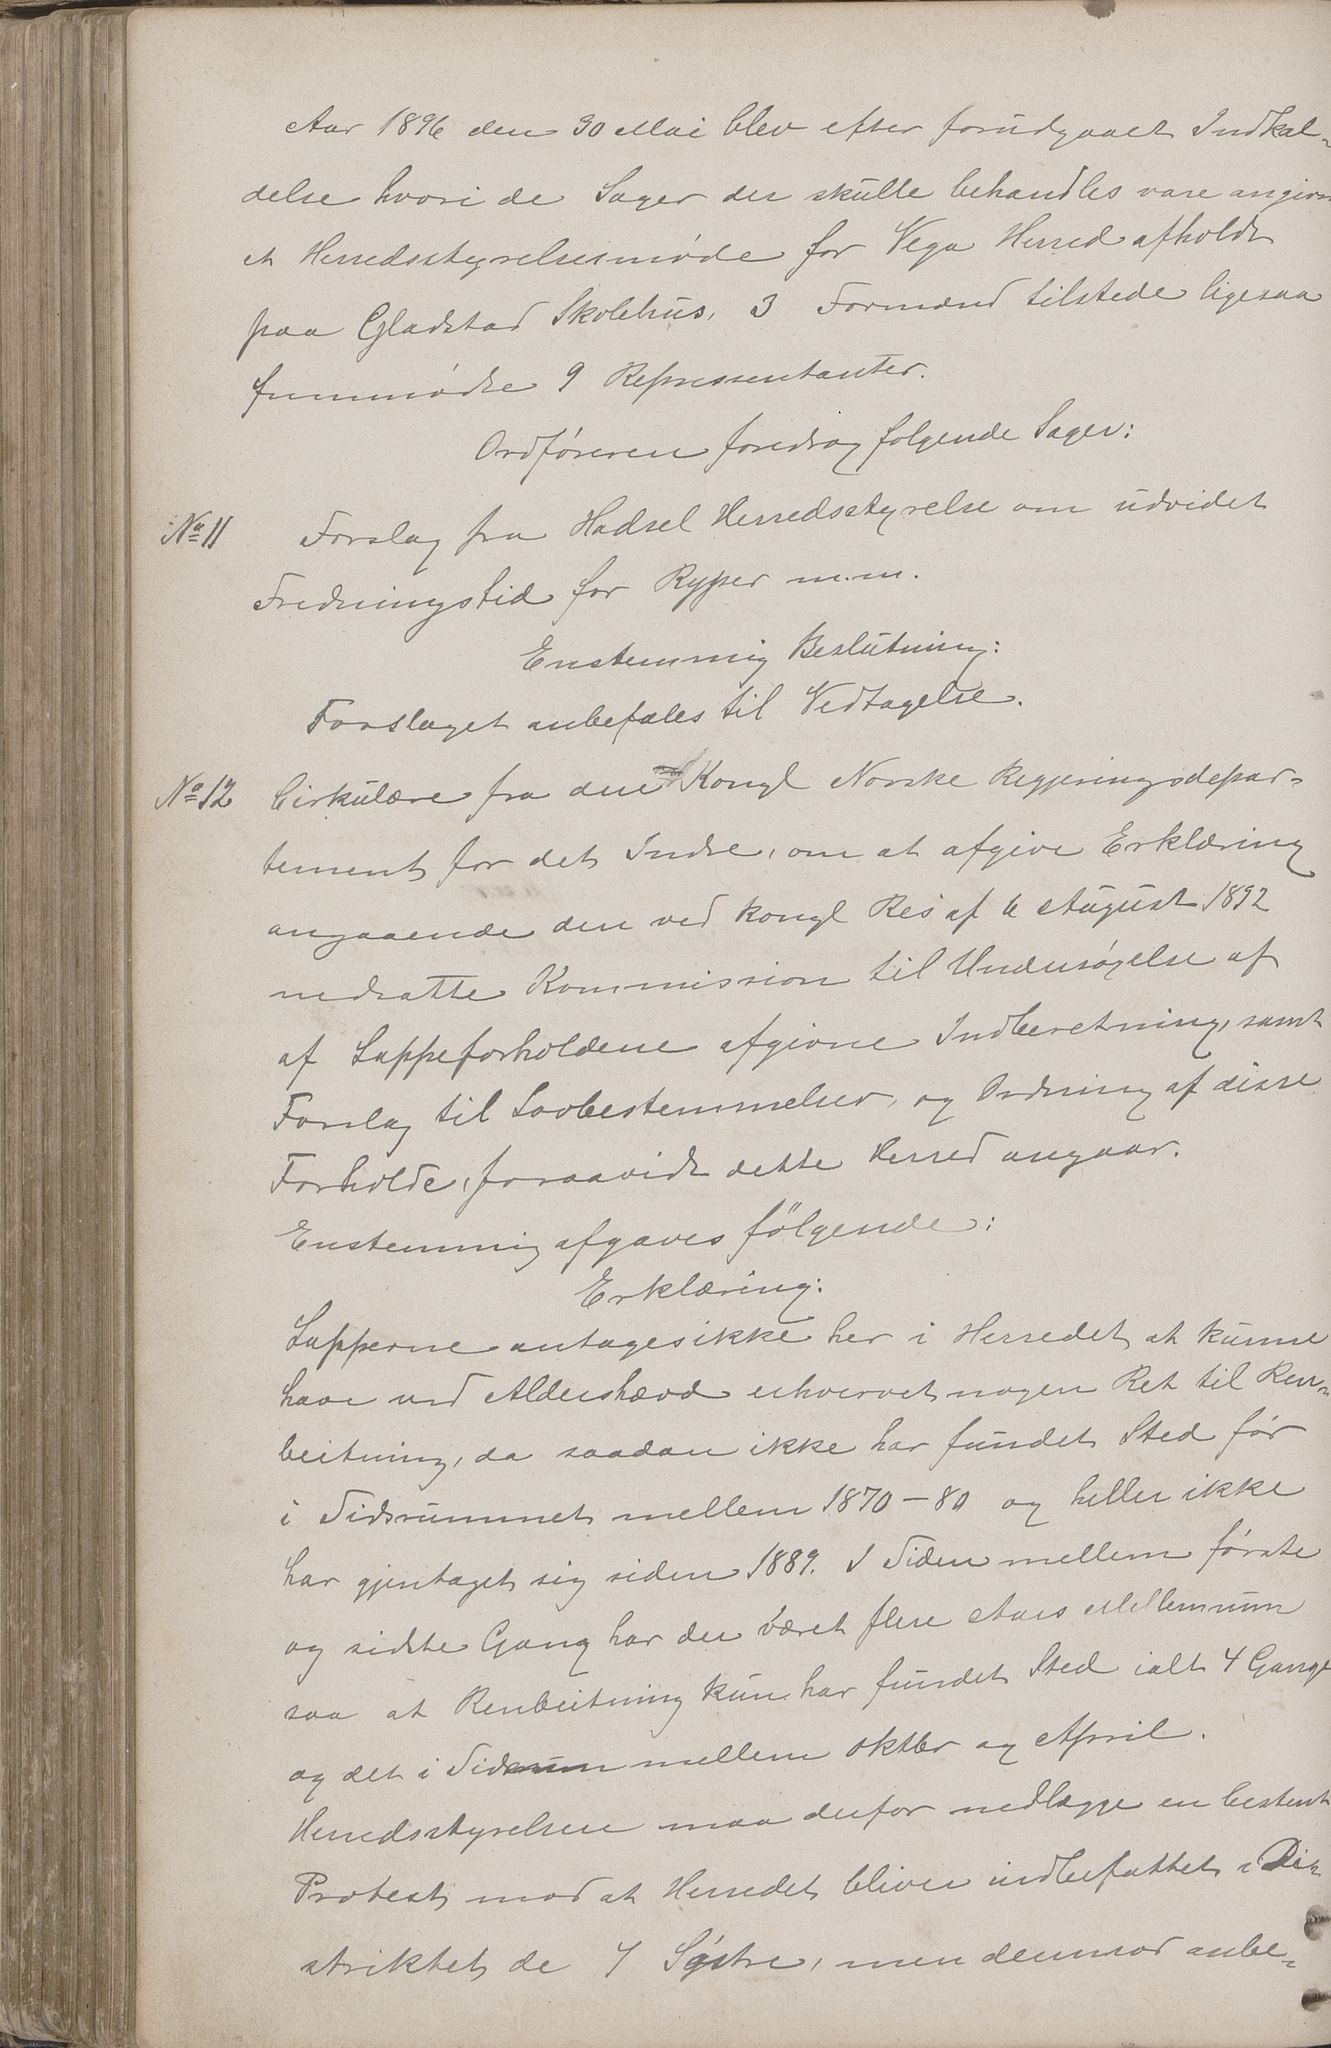 Aar 1896 den 30 Mai blev efter forudgaaet Indkal-
delse hvori de Sager der skulle behandles vare angivne
et Herredsstyrelsesmøde for Vega Herred afholdt
paa Gladstad Skolehus, 3 Formænd tilstede ligesaa
fremmødte 9 Representanter.
Ordføreren foredrog følgende Sager:
No 11 Forslag fra Hadsel Herredsstyrelse om udvidet
Fredningstid for Ryper m.m.
Enstemmig Beslutning:
Forslaget anbefales til Vedtagelse.
No 12 Cirkulære fra den Kongl Norske Regjeringsdepar-
tement for det Indre, om at afgive Erklæring
angaaende den ved kongl Res af 6 August 1892
nedsatte Kommission til Undersøgelse af
af Lappeforholdene afgivne Indberetning, samt
Forslag til Lovbestemmelser, og Ordning af disse
Forholde, forsaavidt dette Herred angaar.
Enstemmig afgaves følgende:
Erklæring:
Lapperne antages ikke her i Herredet at kunne
have ved Aldershævd erhvervet nogen Ret til Ren-
beitning, da saadan ikke har fundet Sted før
i Tidsrummet mellem 1870-80 og heller ikke
har gjentaget sig siden 1889. I Tiden mellem første
og sidste Gang har der været flere Aars Mellemrum
saa at Renbeitning kun har fundet Sted ialt 4 Gange
og det i Tidsrum mellem oktbr og April.
Herredsstyrelsen maa derfor nedlægge en bestemt
Protest mod at Herredet bliver indbefattet i Dis
striktet de 7 Søstre, men derimod anbe-